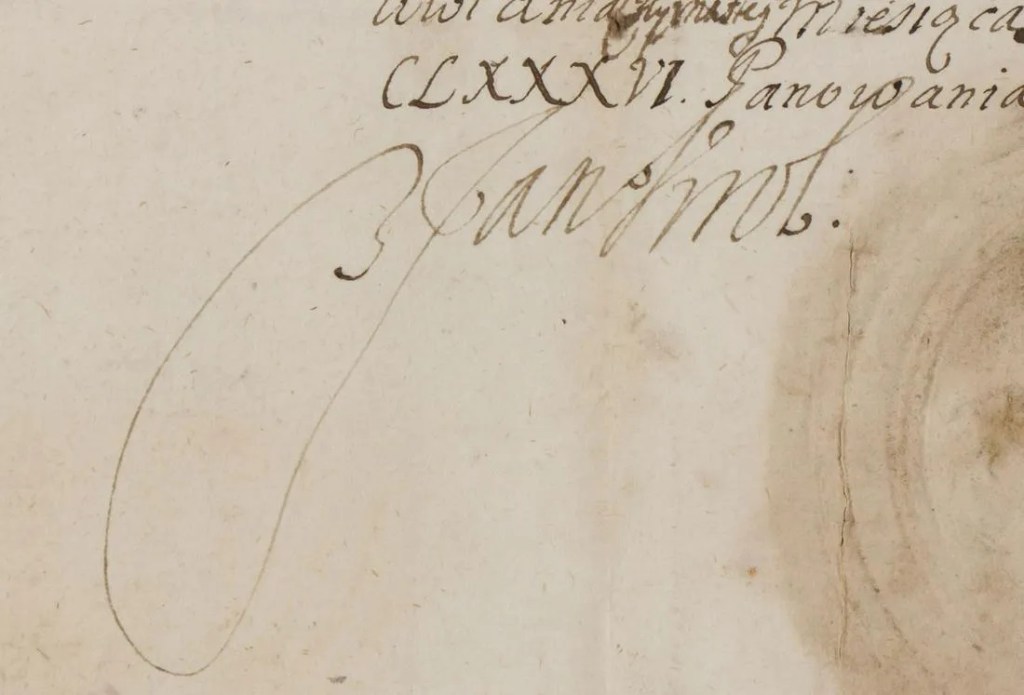 dnia Miesiąca
CLXXXVI. Panowania
Jan Krol.